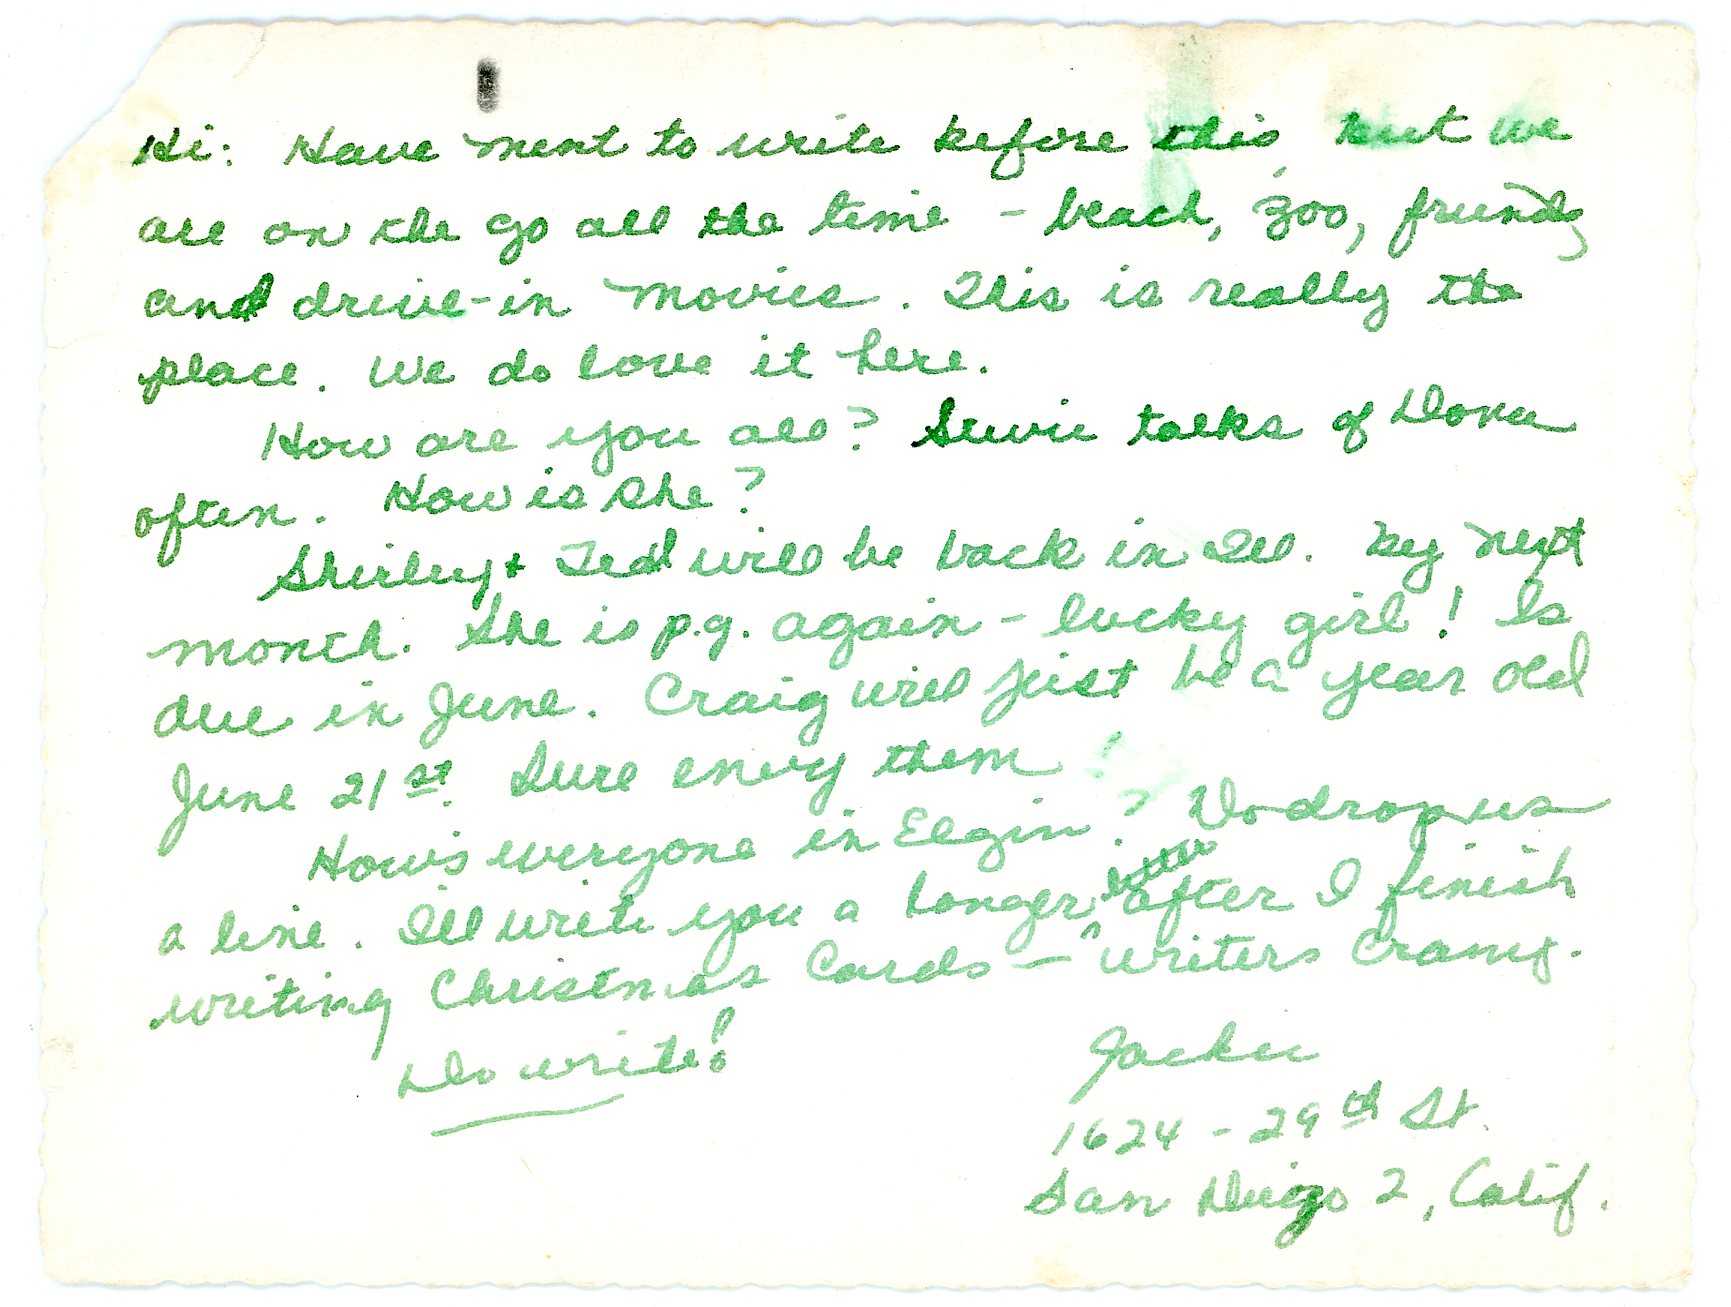 Hi: Have ment to write before this, but we
are on the go all the time - beach, zoo, friends
and drive-in movies. This is really the
place. We do love it here.
How are you all? talks of Dona
often. How is she?
Shirley + Ted will be back in Ill. by next
month. She is p.g. again - lucky girl! Is
due in June. Craig will just be a year old
June 21st. Sure envy them
How's everyone in Elgin? Do drop us
a line. I'll write you a longer letter after I finish
writing Christmas Cards - writers cramp.
Do write!
Jackie
1624 - 29th St.
San Diego 2, Calif.